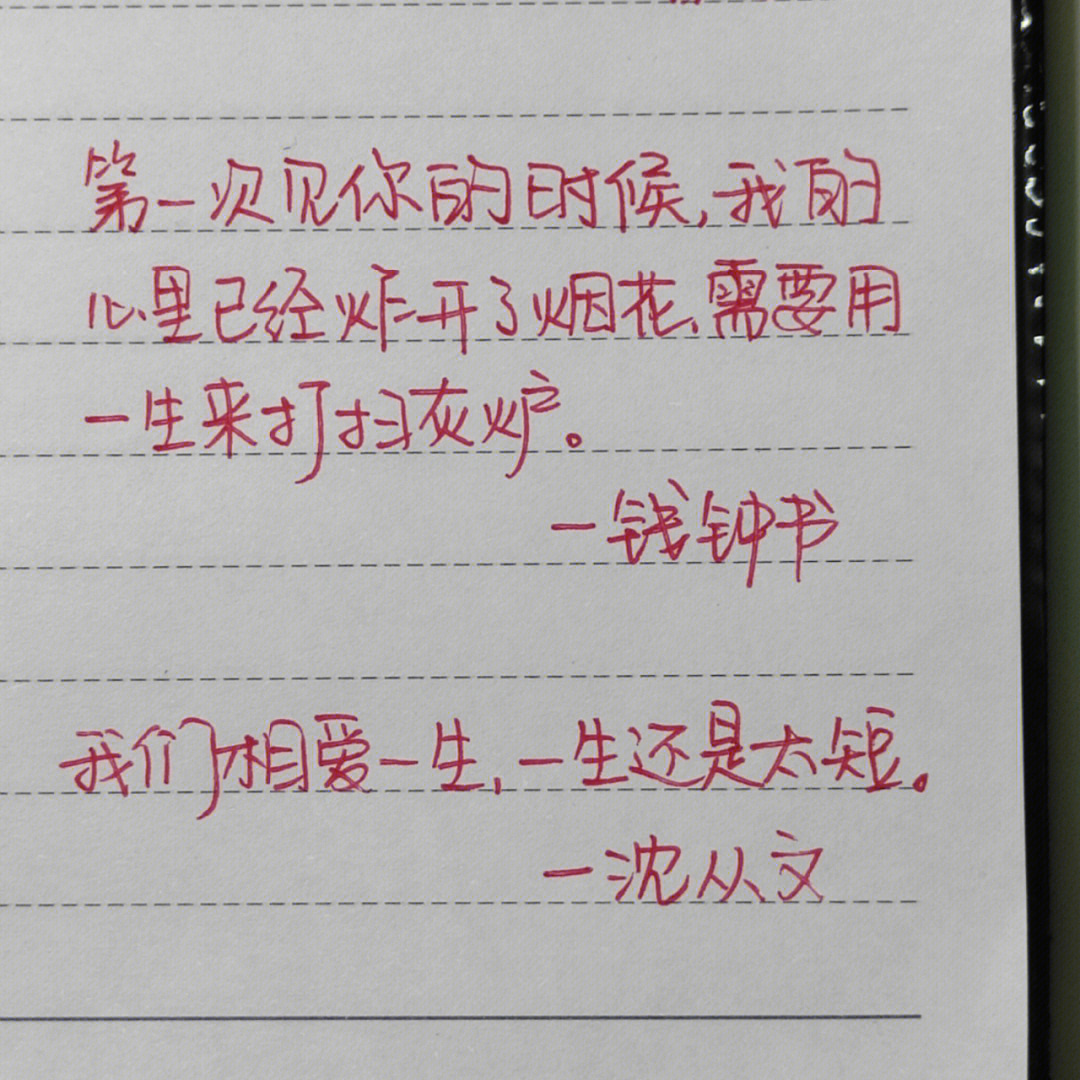 第一次见你的时候,我的
心里已经炸开了烟花,需要用
一生来打扫灰炉。
—钱钟书
我们相爱一生,一生还是太短。
—沈从文